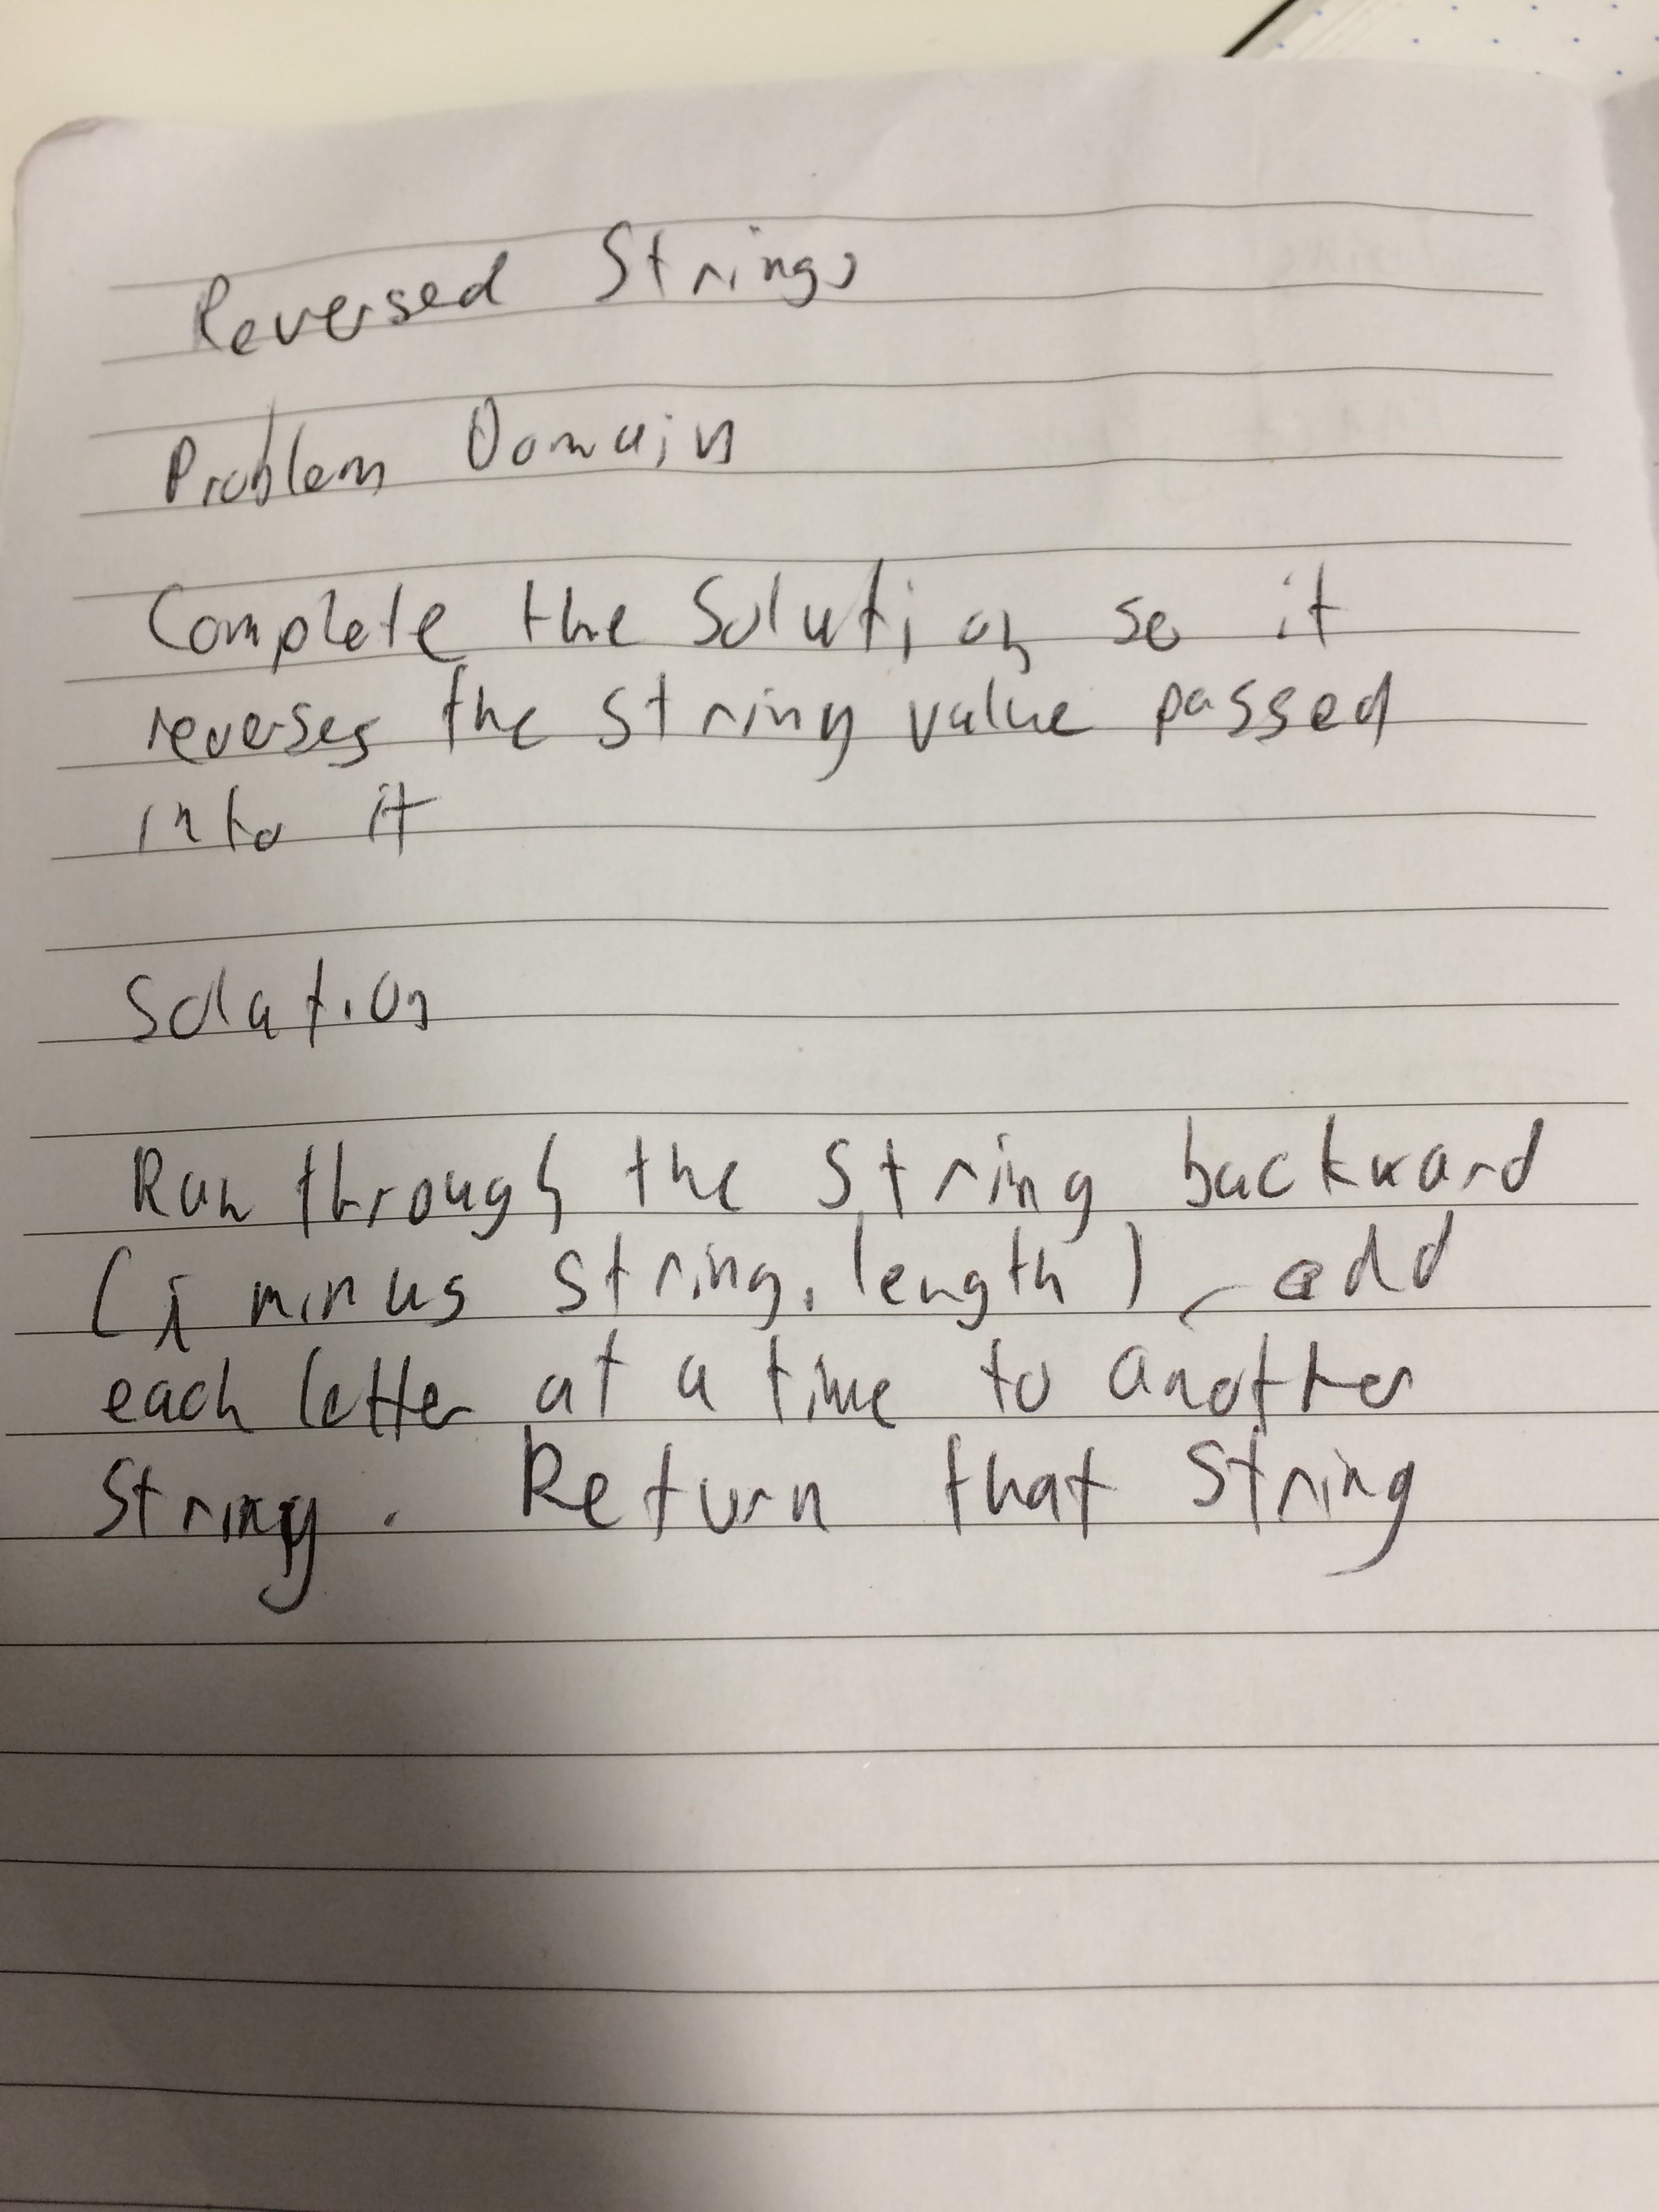 Reversed Strings
Problem Domain
Complete the Solution so it
reverses the string value passed
into it
Solution
Run through the String backward
(i minus string.length), add
each letter at a time to another
String. Return that String